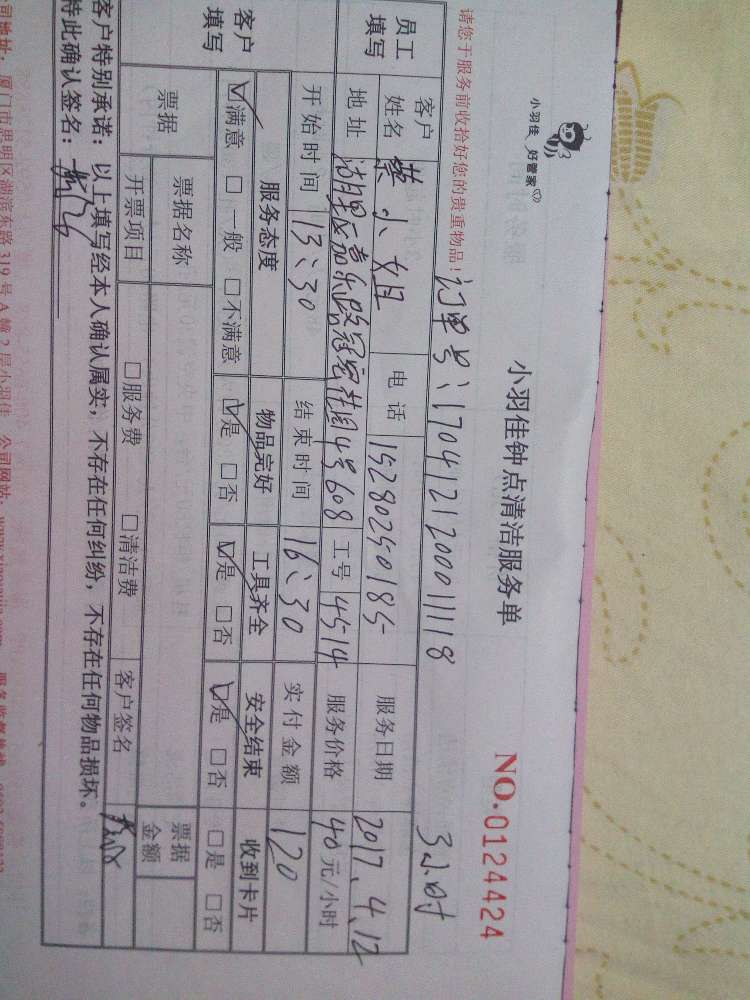 小羽佳 好管家
小羽佳钟点清洁服务单
NO.0124424
请您于服务前收拾好您的贵重物品！
订单号：170412120001118 3小时
员工填写
客户姓名 小姐 电话 15280250185 服务日期 2017.4.12
地址 湖里区嘉禾路冠宏花园4号608 工号 4514 服务价格 40元/小时
开始时间 13：30 结束时间 16：30 实付金额 120
客户填写
服务态度 物品完好 工具齐全 安全结束 收到卡片
☑满意 □一般 □不满意 ☑是 □否 ☑是 □否 ☑是 □否 □是 □否
票据 票据名称 票据金额
开票项目 □服务费 □清洁费 客户签名
客户特别承诺：以上填写经本人确认属实，不存在任何纠纷，不存在任何物品损坏。
特此确认签名：
司地址：厦门市思明区湖滨东路319号A幢2层小羽佳 公司网站：